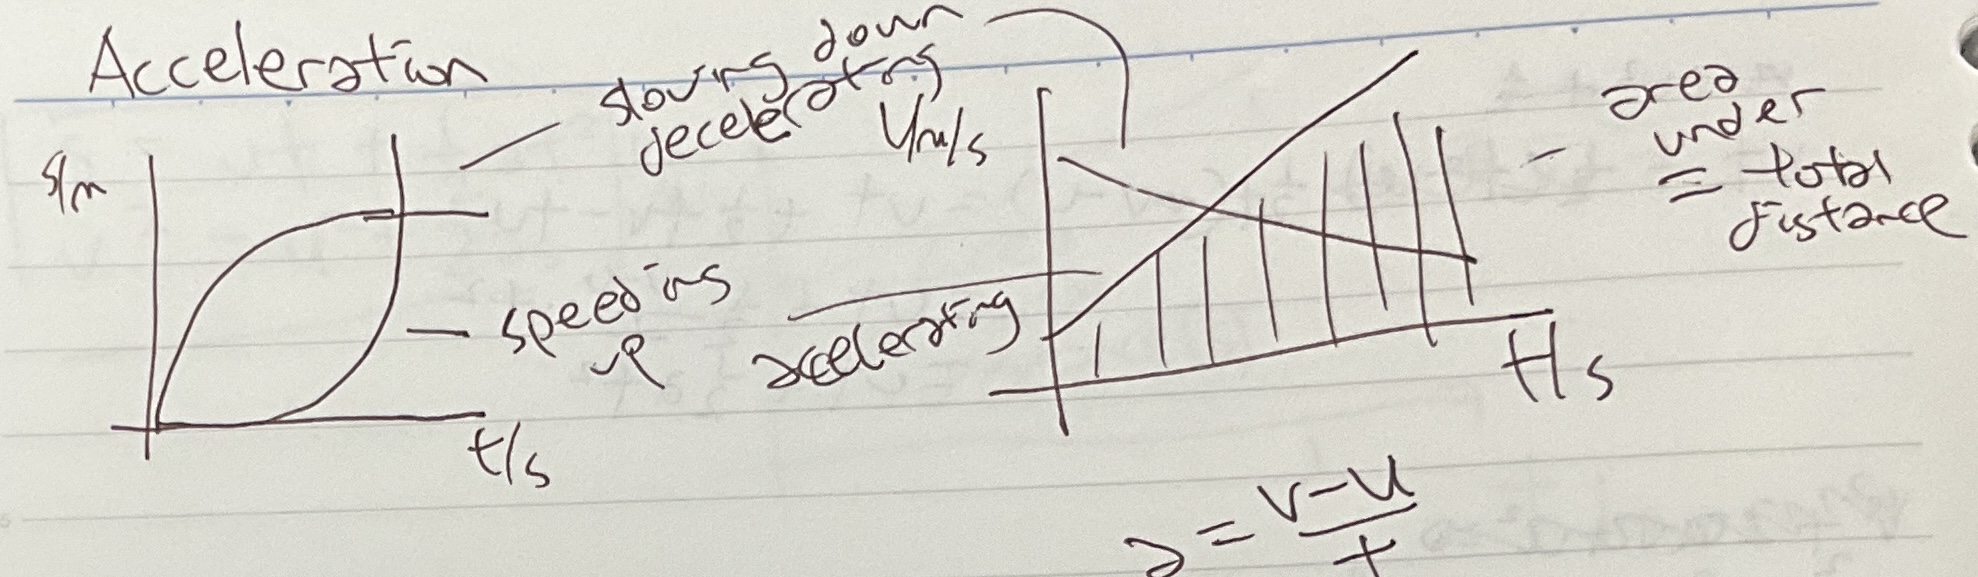 Acceleration
slowing down
decelerating
s/m
speeding
up
t/s
V/m/s
accelerating
t/s
area
under
= total
distance
a = v-u
t